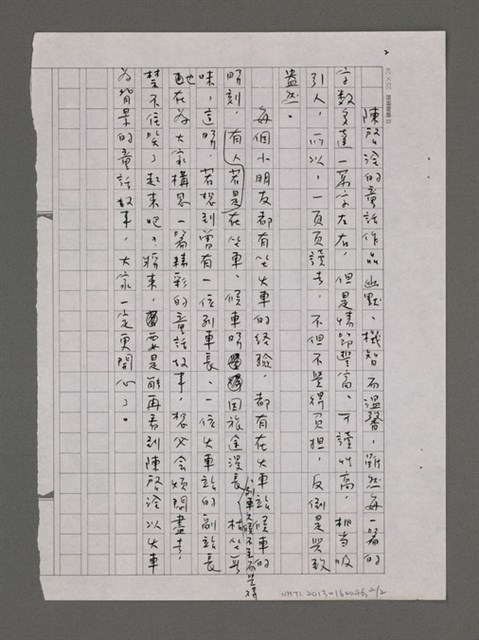 2
陳啓淦的童話作品幽默、機智而溫馨,雖然每一篇的
字數多達一萬字左右,但是情節豐富、可讀性高,相當吸
引人,所以,一頁頁讀去,不但不覺得負擔,反倒是興致
盎然。
每個小朋友都有坐火車的經驗,都有在火車站候車的
時刻,有人若是在坐車、候車時因旅途漫長、枯坐無
味,這時,若想到曾有一位列車長、一位火車站的副站長
也在為大家構思一篇精彩的童話故事,想必會煩悶盡去,
禁不住笑了起來吧?將來,要是能再看到陳啓淦以火車
為背景的童話故事,大家一定更開心了。
NMTL 2013 0160046, 2/2